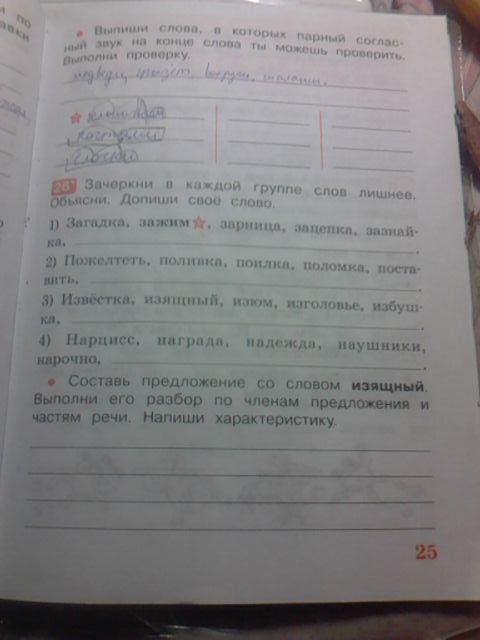 • Выпиши слова, в которых парный соглас-
ный звук на конце слова ты можешь проверить.
Выполни проверку.
26 Зачеркни в каждой группе слов лишнее.
Объясни. Допиши своё слово.
1) Загадка, зажим, зарница, зацепка, зазнай-
ка, .
2) Пожелтеть, поливка, поилка, поломка, поста-
вить, .
3) Извёстка, изящный, изюм, изголовье, избуш-
ка, .
4) Нарцисс, награда, надежда, наушники,
нарочно, .
• Составь предложение со словом изящный.
Выполни его разбор по членам предложения и
частям речи. Напиши характеристику.
25